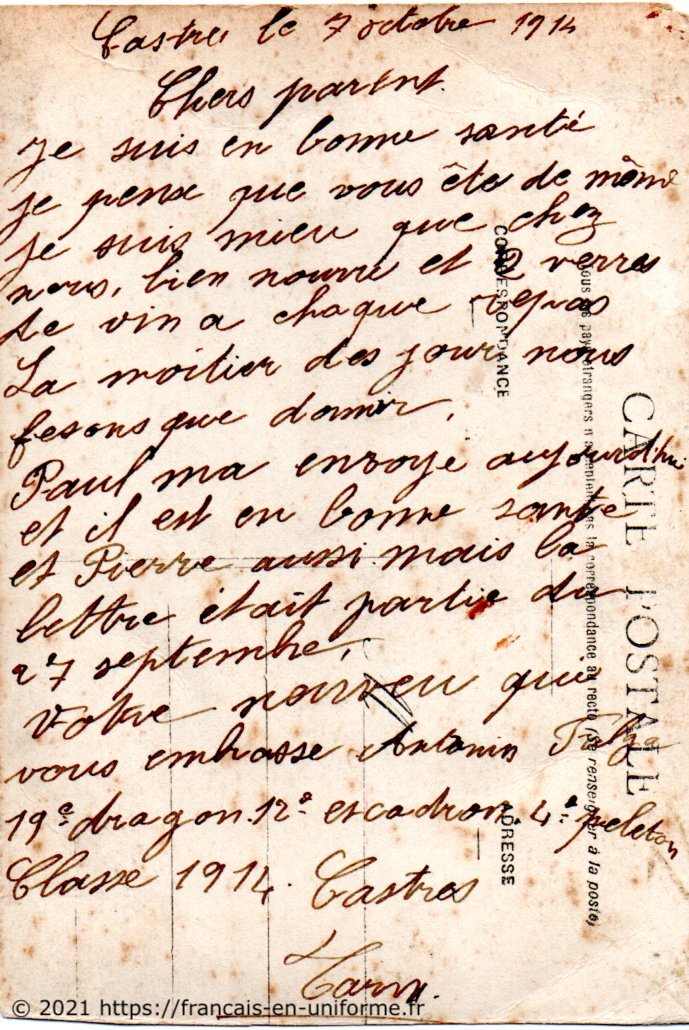 Castres le 7 octobre 1914
Chers parent.
Je suis en bonne santé
je pense que vous ête de même
je suis mieu que chez
nous, bien nourri et 2 verres
de vin a chaque repas
La moitier des jour nous
fesons que dormir,
Paul ma envoyé aujourd'hui
et il est en bonne santé
et Pierre aussi mais la
lettre était partie du
27 septembre,
Votre neuveu qui
vous embrasse Antonin
19e dragon 12e escadron 4e peleton
Classe 1914. Castres
Tarn.
CARTE POSTALE
Tous les pays étrangers n'acceptent pas la correspondance au recto (Se renseigner à la poste)
CORRESPONDANCE
ADRESSE
© 2021 https://francais-en-uniforme.fr